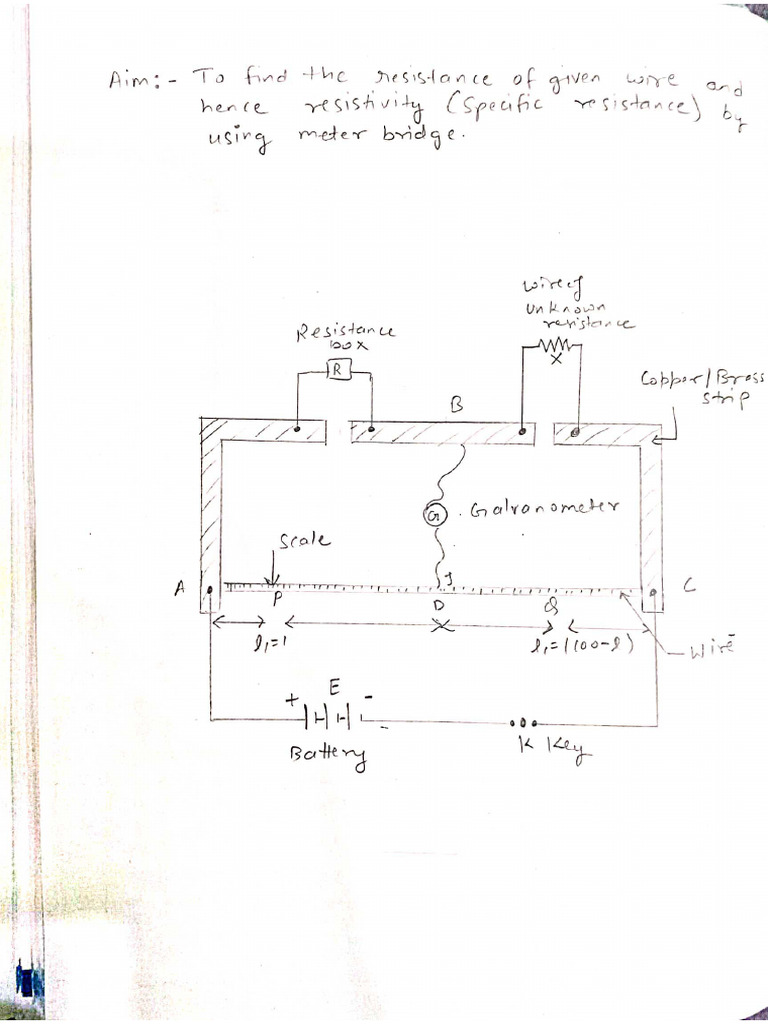 Aim:- To find the resistance of given wire and
hence resistivity (Specific resistance) by
using meter bridge.
wire of
unknown
resistance
Resistance
box
R
X
Copper/Brass
strip
B
G
Galvanometer
Scale
A
J
C
P
D
Q
l₁=l
l₁=(100-l)
wire
+ E -
Battery
K Key